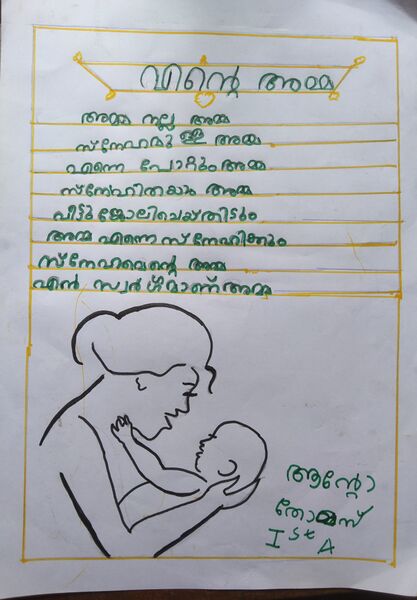 എന്റെ അമ്മ
അമ്മ നല്ല അമ്മ
സ്നേഹമുള്ള അമ്മ
എന്നെ പോറ്റും അമ്മ
സ്നേഹിതയാം അമ്മ
വീട്ടുജോലിചെയ്തിടും
അമ്മ എന്നെ സ്നേഹിക്കും
സ്നേഹമെന്റെ അമ്മ
എൻ സ്വർഗമാണ് അമ്മ
ആന്റോ
തോമസ്
I st A